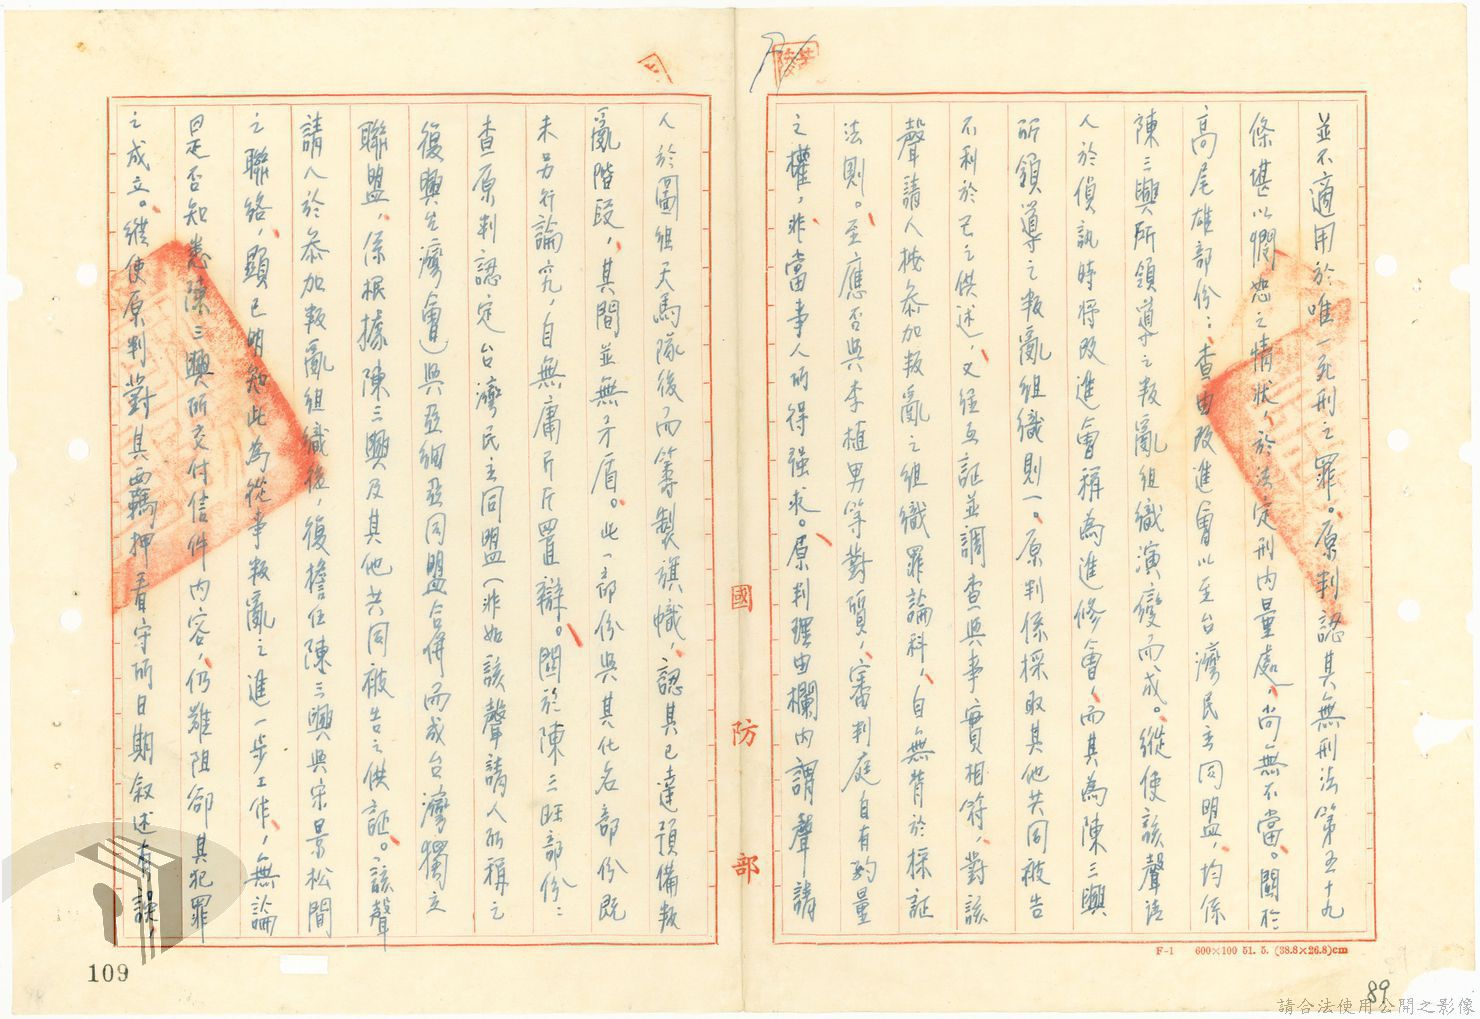 並不適用於唯一死刑之罪。原判認其無刑法第五十九
條堪以憫恕之情狀，於法定刑內量處，尚無不當。關於
高尾雄部份：查由改進會以至台灣民主同盟，均係
陳三興所領導之叛亂組織演變而成。縱使該聲請
人於偵訊時將改進會稱為進修會，而其為陳三興
所領導之叛亂組織則一。原判係採取其他共同被告
不利於己之供述，又經互証並調查與事實相符，對該
聲請人據參加叛亂之組織罪論科，自無背於採証
法則。至應否與李植男等對質，審判庭自有酌量
之權，非當事人所得強求。原判理由欄內謂聲請
人於圖組天馬隊後而籌製旗幟，認其已達預備叛
亂階段，其間並無矛盾。此一部份與其化名部份既
未另行論究，自無庸斤斤置辯。關於陳三旺部份：
查原判認定台灣民主同盟（非如該聲請人所稱之
復興先灣會）與亞細亞同盟合併而成台灣獨立
聯盟，係根據陳三興及其他共同被告之供証。該聲
請人於參加叛亂組織後，復擔任陳三興與宋景松間
之聯絡，顯已明知此為從事叛亂之進一步工作，無論
曰是否知悉陳三興所交付信件內容，仍難阻卻其犯罪
之成立。縱使原判對其西羈押看守所日期敘述有誤，
國防部
F-1 600×100 51. 5. (38.8×26.8)cm
109
89
請合法使用公開之影像